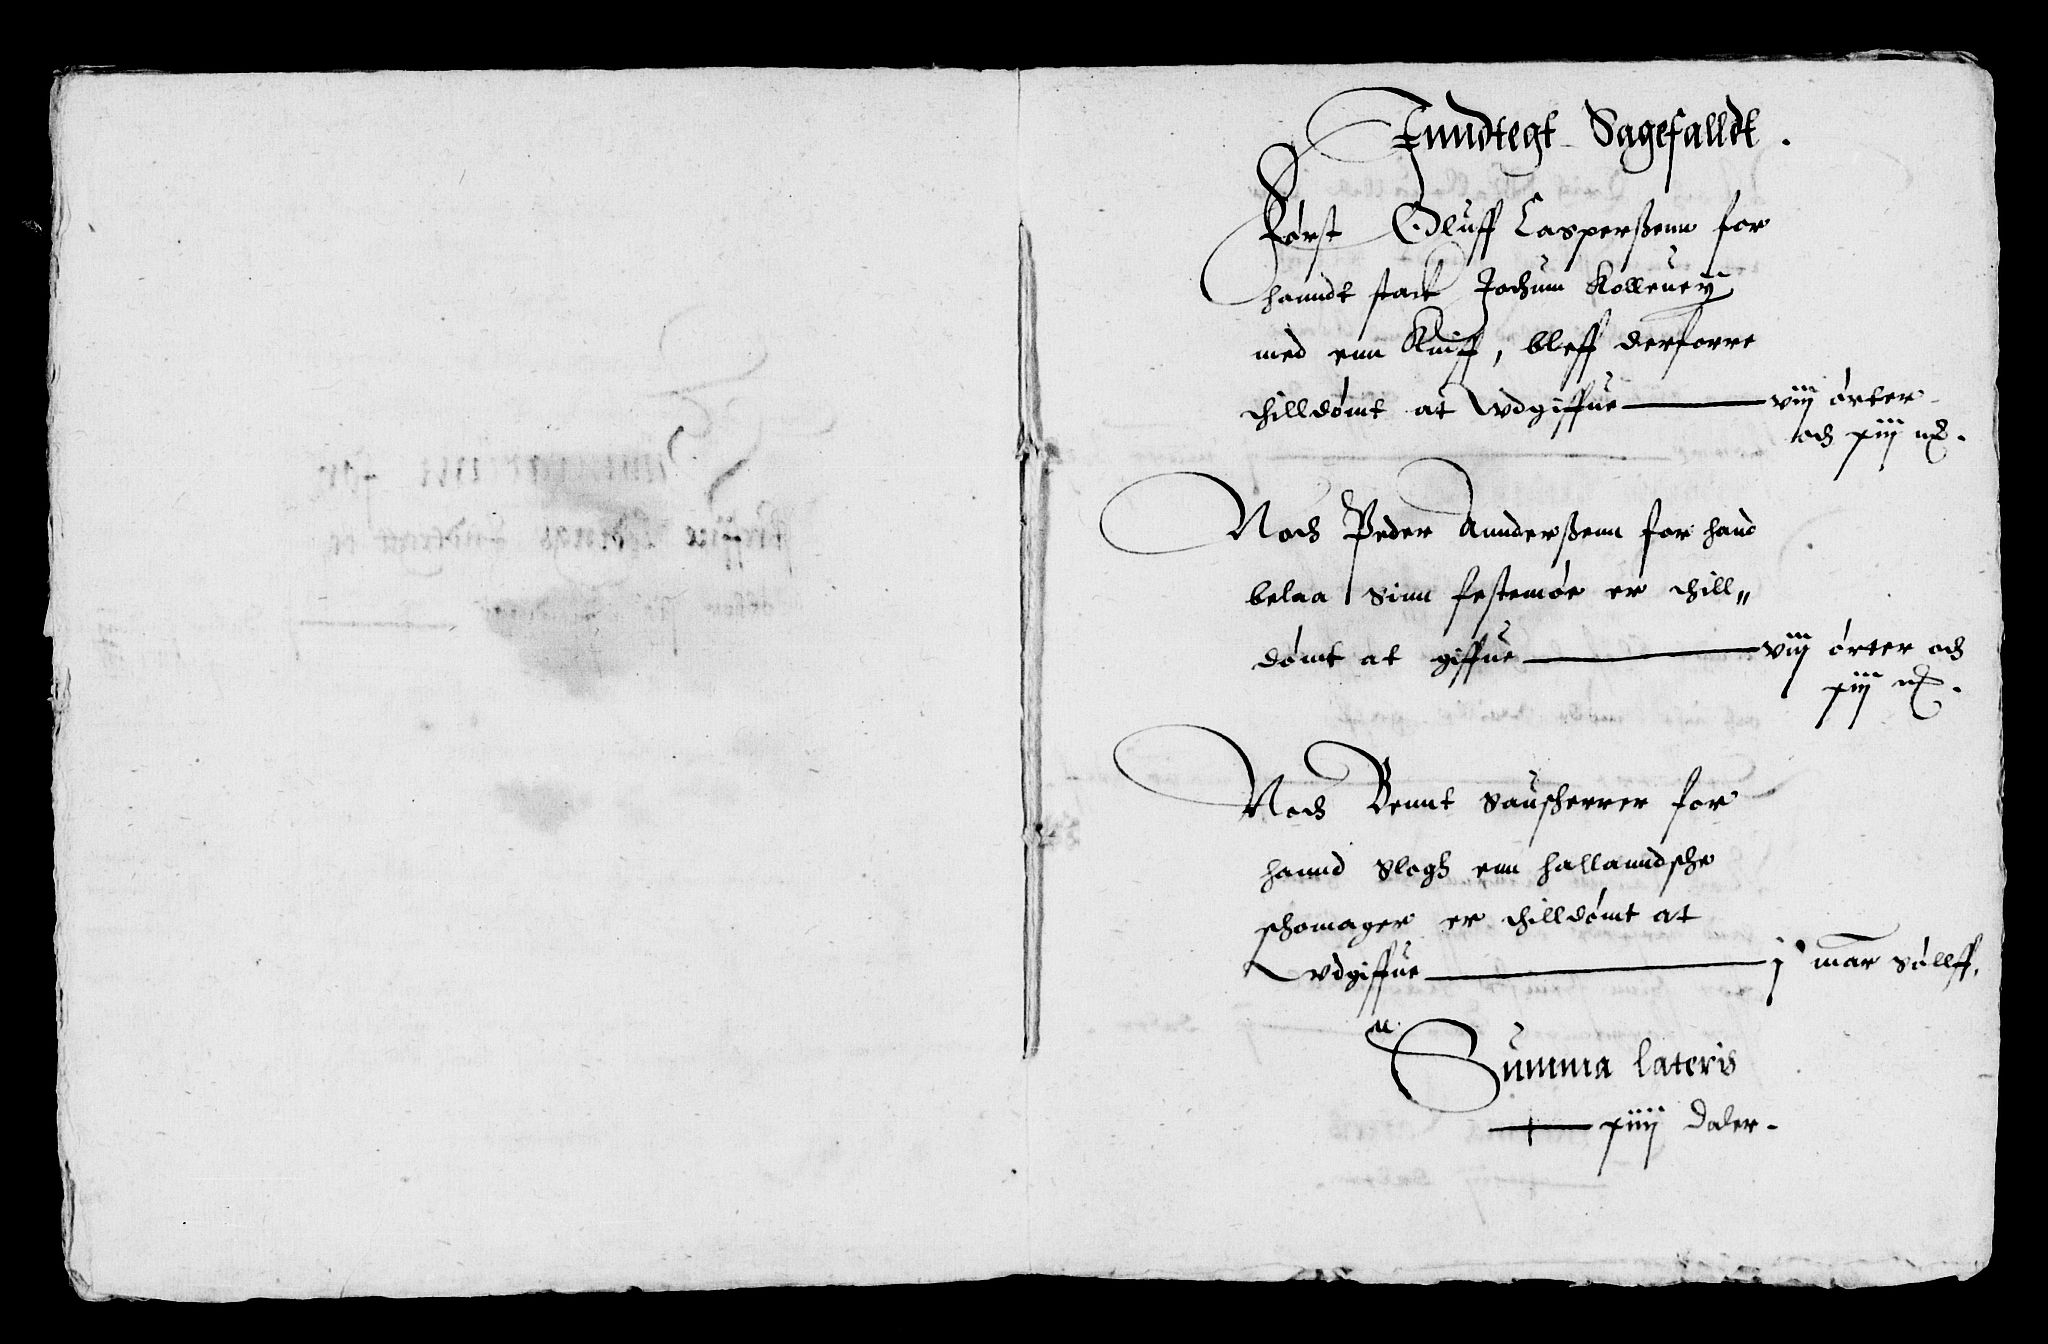 Inndtegt Sagefalldt.
Først Oluff Casperßenn for
hanndt stack Jochum Kolleuey
med enn Kniff, bleff derforre
thilldømt at vdgiffue — viij ørter
och xiij ʉß.
Noch Peder Anndersßenn for hand
belaa sinn festemøe er thill„
dømt at giffue — viij ørter och
xiij ʉß.
Noch Bennt Sauskerrer for
hannd slogh enn hallanndsche
schomager er thilldømt at
vdgiffue — j mar søllff.
Summa lateris
— xiiij Daler.